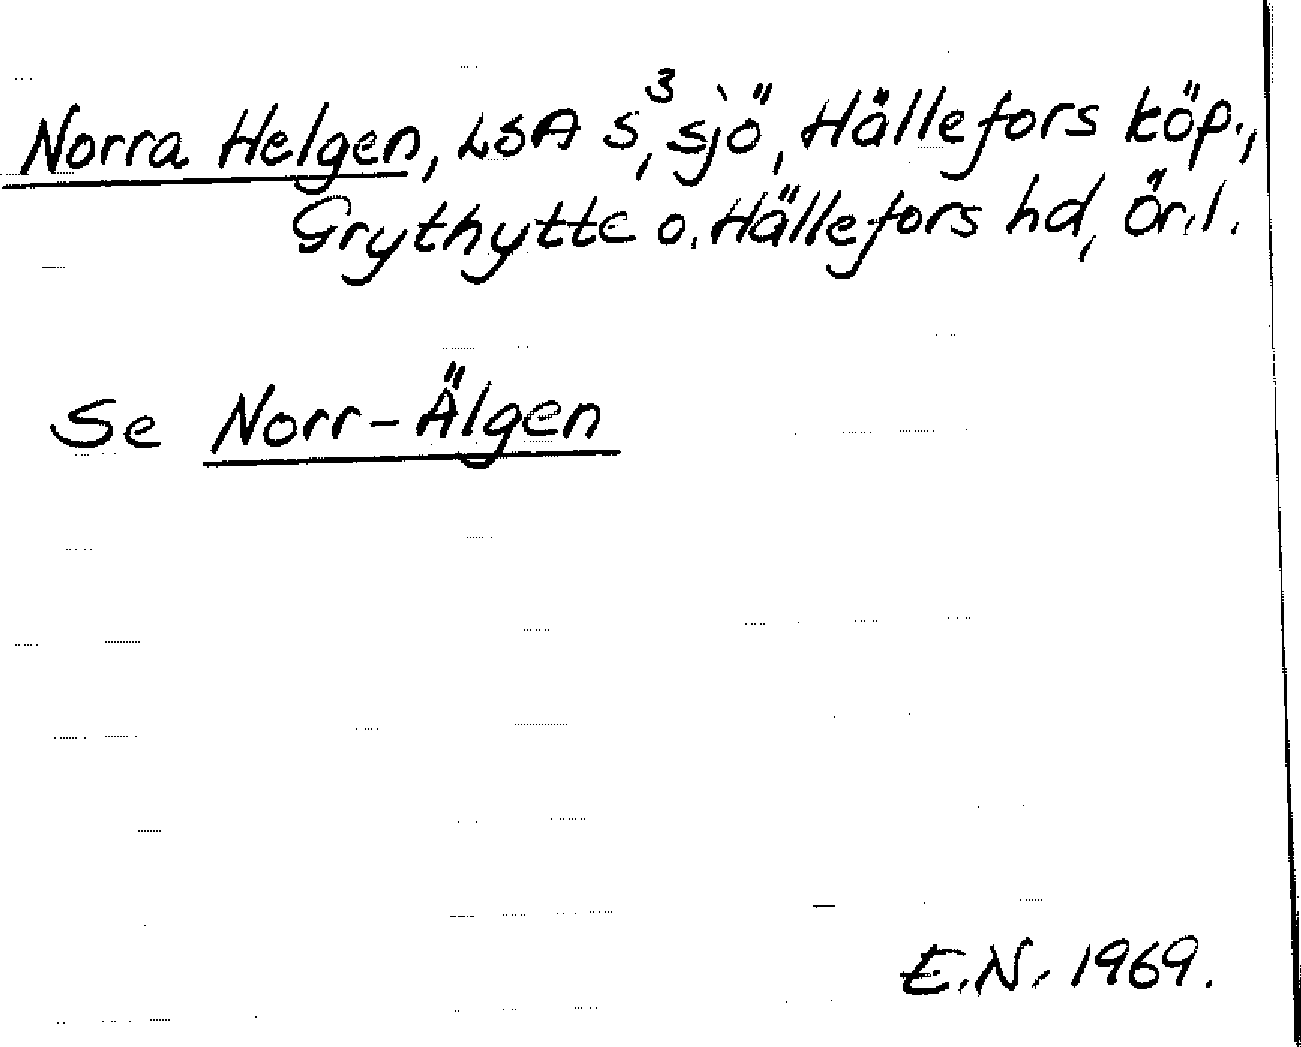 Norra Helgen, LSA S³, sjö, Hällefors köp.,
Grythytte o. Hällefors hd, Ör.l.
Se Norr-Älgen
E.N. 1969.